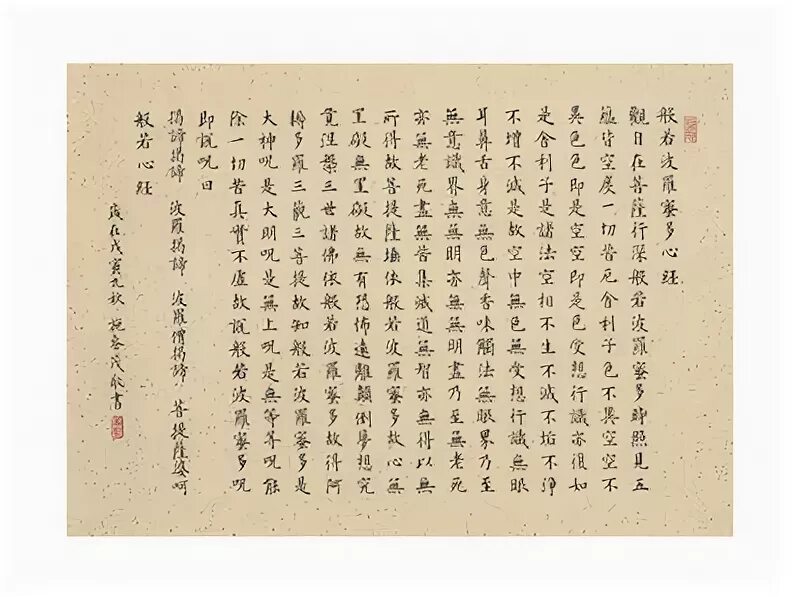 般若波羅蜜多心経
觀自在菩薩行深般若波羅蜜多時照見五
蘊皆空度一切苦厄舍利子色不異空空不
異色色即是空空即是色受想行識亦復如
是舍利子是諸法空相不生不滅不垢不淨
不增不減是故空中無色無受想行識無眼
耳鼻舌身意無色聲香味觸法無眼界乃至
無意識界無無明亦無無明盡乃至無老死
亦無老死盡無苦集滅道無智亦無得以無
所得故菩提薩埵依般若波羅蜜多故心無
罣礙無罣礙故無有恐怖遠離顛倒夢想究
竟涅槃三世諸佛依般若波羅蜜多故得阿
耨多羅三藐三菩提故知般若波羅蜜多是
大神呪是大明呪是無上呪是無等等呪能
除一切苦真實不虛故說般若波羅蜜多呪
即說呪曰
揭諦揭諦 波羅揭諦 波羅僧揭諦 菩提薩婆呵
般若心経
歲在戊寅 秋 施 茂 書